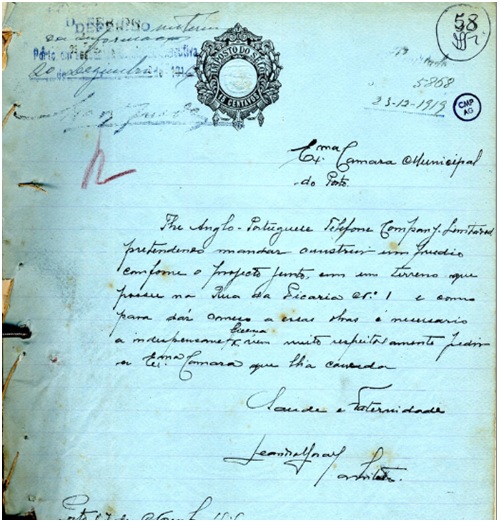 DEFERIDO
58
IMPOSTO DO SELO
5868
23-12-1919
CMP
AG
Exma Camara Municipal
do Porto
The Anglo-Portuguese Telefone Company, Limited
pretendendo mandar construir um predio
conforme o projecto junto, em um terreno que
possue na Rua da Picaria Nº 1 e como
para dár começo a essas obras é necessario
a indispensavel licença vem muito respeitosamente pedir
a Exma Camara que lha conceda
Saude e Fraternidade